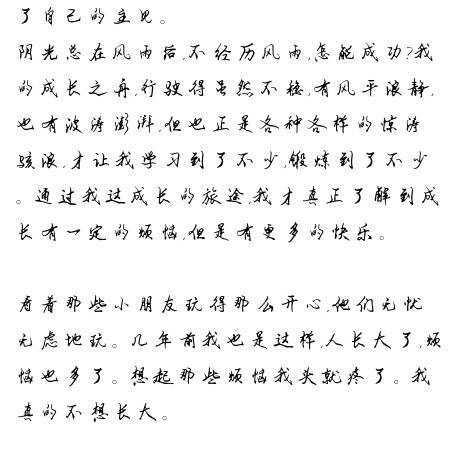 了自己的主见。
阴光总在风雨后,不经历风雨,怎能成功?我
的成长之舟,行驶得虽然不稳,有风平浪静,
也有波涛澎湃,但也正是各种各样的惊涛
骇浪,才让我学习到了不少,锻炼到了不少
。通过我这成长的旅途,我才真正了解到成
长有一定的烦恼,但是有更多的快乐。
看着那些小朋友玩得那么开心,他们无忧
无虑地玩。几年前我也是这样,人长大了,烦
恼也多了。想起那些烦恼我头就疼了。我
真的不想长大。